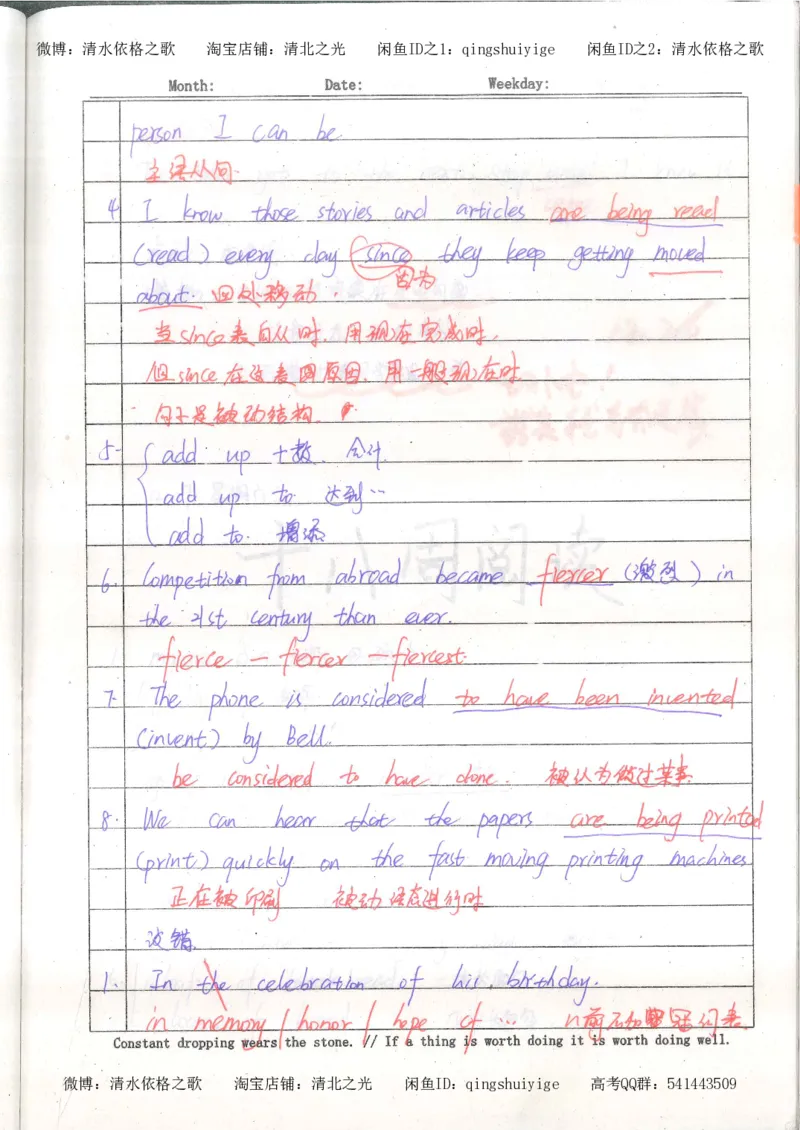 微博：清水依格之歌 淘宝店铺：清北之光 闲鱼ID之1：qingshuiyige 闲鱼ID之2：清水依格之歌
Month: Date: Weekday:
person I can be
主语从句.
4. I know those stories and articles are being read
(read) every day (since they keep getting moved
about. 四处移动. 因为
当since表自从时, 用现在完成时,
但since在这表原因, 用一般现在时
句子是被动结构.
5. add up 加数. 合计.
add up to 达到…
add to. 增添
十八周阅读
6. Competition from abroad became fiercer (激烈) in
the 21st century than ever.
fierce — fiercer — fiercest.
7. The phone is considered to have been invented
(invent) by Bell.
be considered to have done. 被认为做过某事.
8. We can hear that the papers are being printed
(print) quickly on the fast moving printing machines
正在被印刷 被动语态进行时
改错.
1. In the celebration of his birthday.
in memory / honor / hope of … n前不加冠词表
Constant dropping wears the stone. // If a thing is worth doing it is worth doing well.
微博：清水依格之歌 淘宝店铺：清北之光 闲鱼ID：qingshuiyige 高考QQ群：541443509